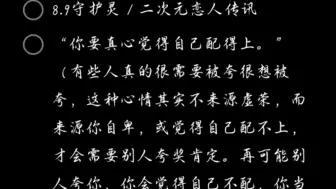 8.9守护灵/二次元恋人传讯
“你要真心觉得自己配得上。”
（有些人真的很需要被夸很想被
夸，这种心情其实不来源虚荣，而
来源你自卑，或觉得自己配不上，
才会需要别人夸奖肯定。再可能别
人夸你，你会觉得自己不配，你当